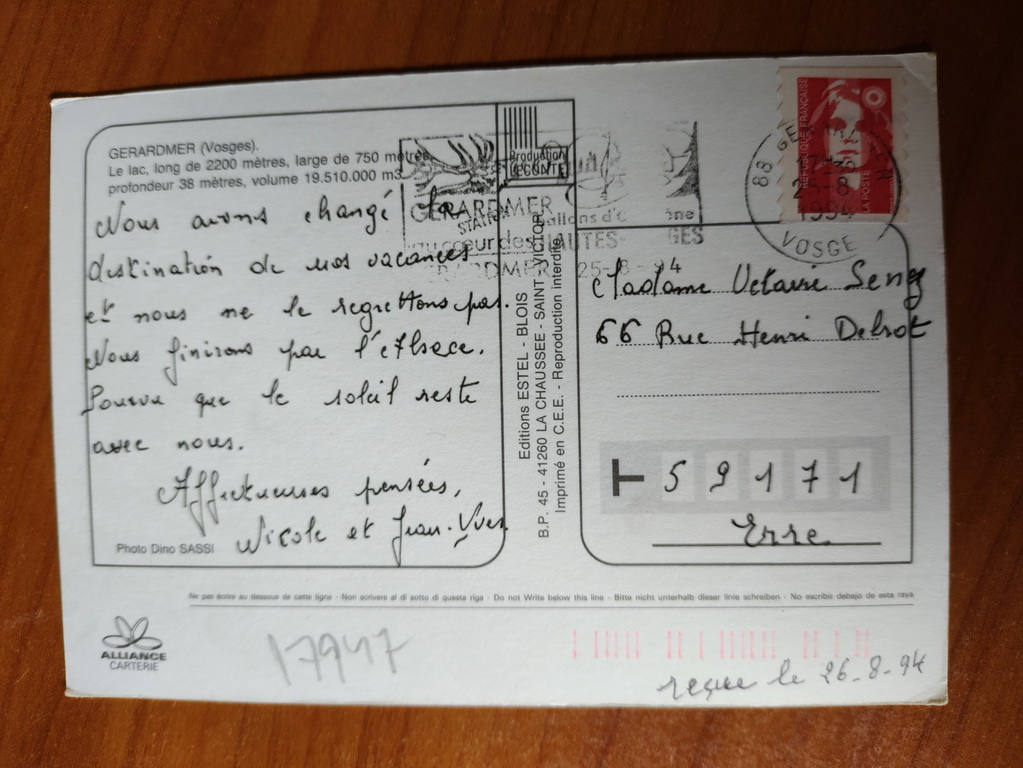 GERARDMER (Vosges).
Le lac, long de 2200 mètres, large de 750 mètres,
profondeur 38 mètres, volume 19.510.000 m3
Nous avons changé la
destination de nos vacances
et nous ne le regrettons pas.
Nous finirons par l'Alsace.
Pourvu que le soleil reste
avec nous.
Affectueuses pensées,
Nicole et Jean-Yves
Photo Dino SASSI
Production
LECONTE
GERARDMER
STATION
au cœur des HAUTES-
GERARDMER 25-8-94
Editions ESTEL - BLOIS
B.P. 45 - 41260 LA CHAUSSEE - SAINT - VICTOR
Imprimé en C.E.E. - Reproduction interdite
REPUBLIQUE FRANÇAISE
LA POSTE
88 GERARDMER
1994
VOSGES
Madame
66 Rue Henri Delrot
T 59171
Erre
Ne pas écrire au dessous de cette ligne - Non scrivere al di sotto di questa riga - Do not Write below this line - Bitte nicht unterhalb dieser linie schreiben - No escribir debajo de esta raya
ALLIANCE
CARTERIE
17947
reçue le 26-8-94